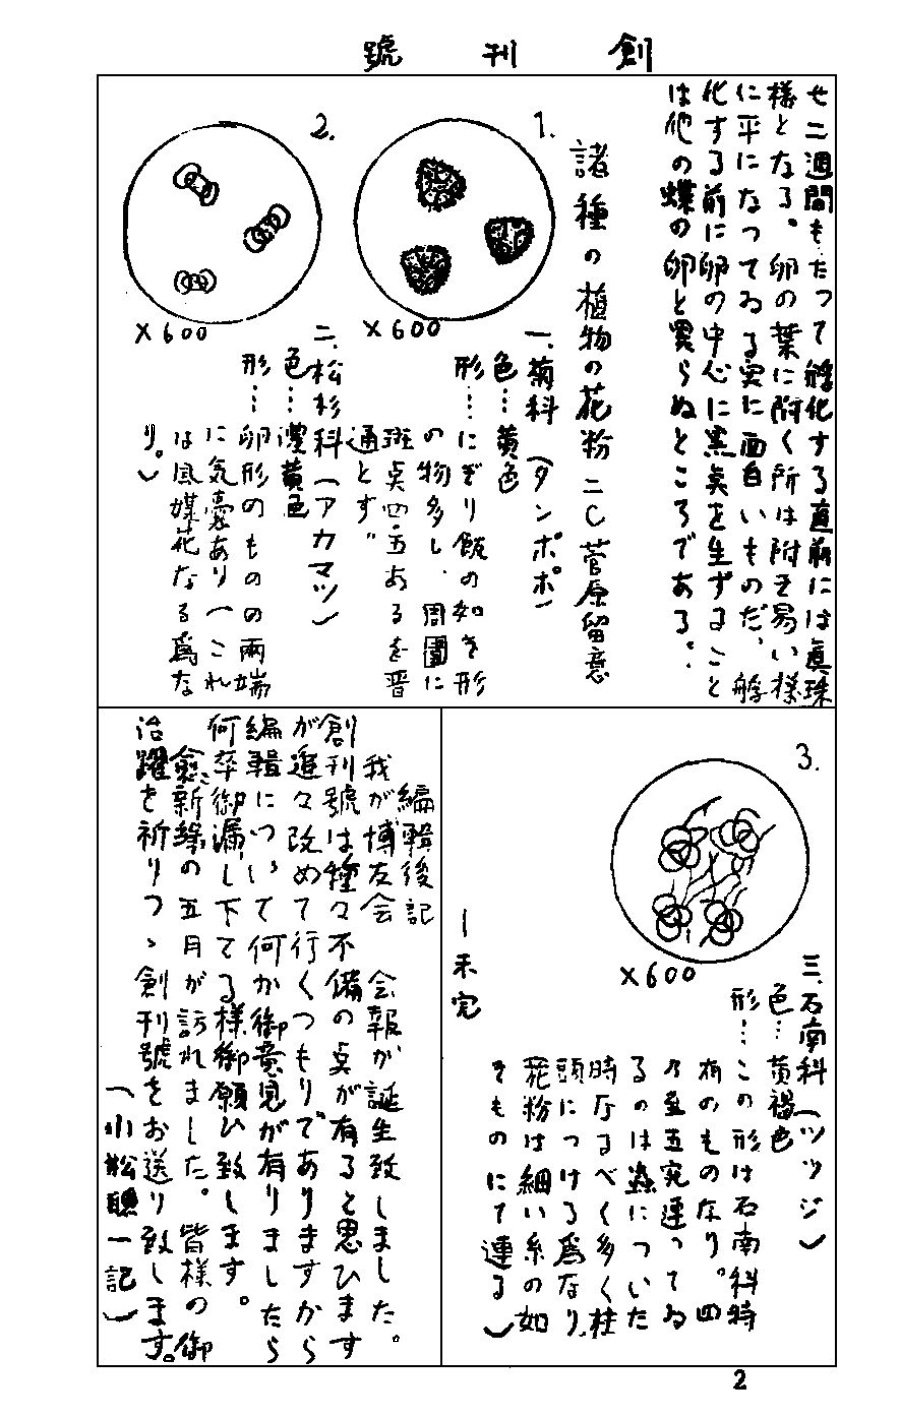 創刊號
せ二週間もたつて孵化する直前には眞珠
様となる。卵の葉に附く所は附き易い様
に平になつてゐる実に面白いものだ、孵
化する前に卵の中心に黒点を生ずること
は他の蝶の卵と異らぬところである。
諸種の植物の花粉 二C菅原留意
1.
×600
一.菊科(タンポポ)
色…黄色
形……にぎり飯の如き形
の物多し、周圍に
斑点四・五あるを普
通とす〃
2.
×600
二.松杉科(アカマツ)
色…濃黄色
形…卵形のものの両端
に気嚢あり(これ
は風媒花なる為な
り。)
3.
×600
三.石南科(ツツジ)
色…黄褐色
形…この形は石南科特
有のものなり。四
乃至五完連つてゐ
るのは蟲についた
時なるべく多く柱
頭につける為なり、
花粉は細い糸の如
きものにて連る)
ー未完
編輯後記
我が博友会 会報が誕生致しました。
創刊號は種々不備の点が有ると思ひます
が進々改めて行くつもりでありますから
編輯について何か御意見が有りましたら
何卒御漏し下てる様御願ひ致します。
愈々新緑の五月が訪れました。皆様の御
活躍を祈りつゝ創刊號をお送り致します。
(小松聰一記)
2